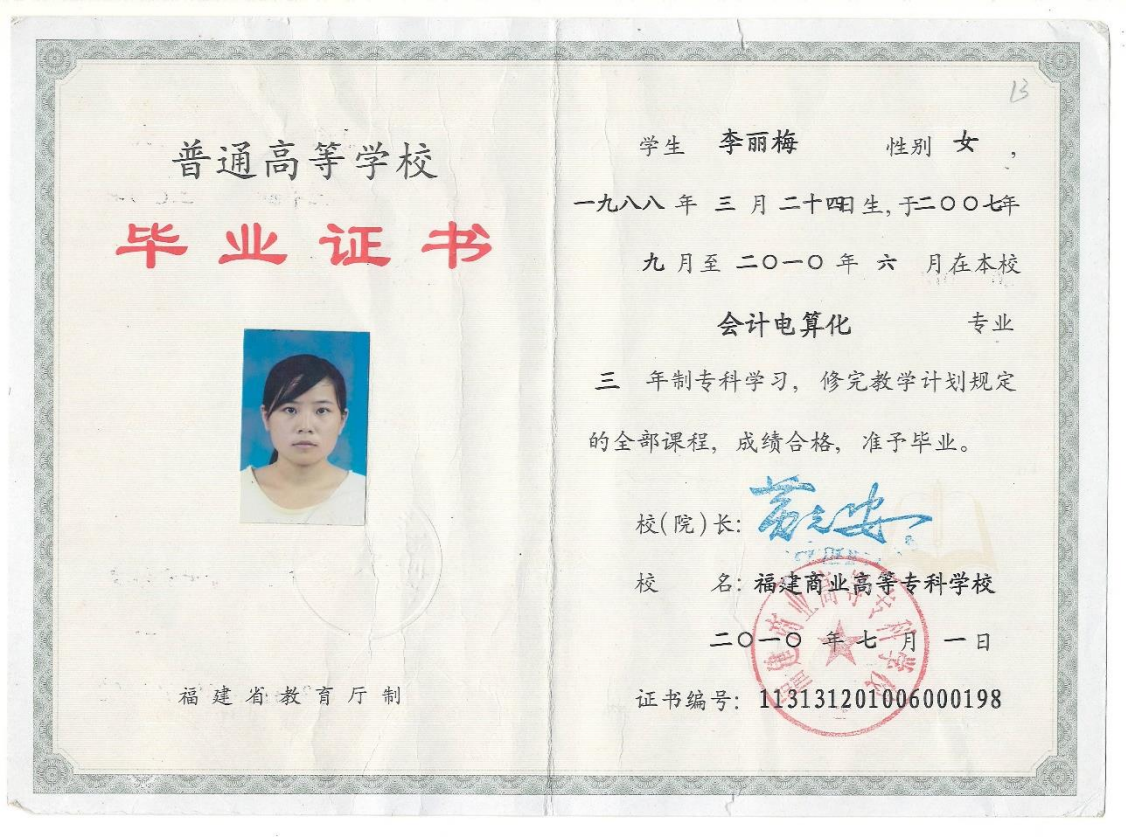 普通高等学校
毕业证书
福建省教育厅制
13
学生 李丽梅 性别 女 ,
一九八八年 三 月 二十四日生,于二〇〇七年
九 月至 二〇一〇 年 六 月在本校
会计电算化 专业
三 年制专科学习, 修完教学计划规定
的全部课程, 成绩合格, 准予毕业。
校(院)长:
校 名: 福建商业高等专科学校
二〇一〇 年 七 月 一 日
证书编号: 113131201006000198
福建商业高等专科学校